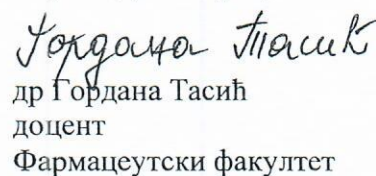 Гордана Тасић
др Гордана Тасић
доцент
Фармацеутски факултет